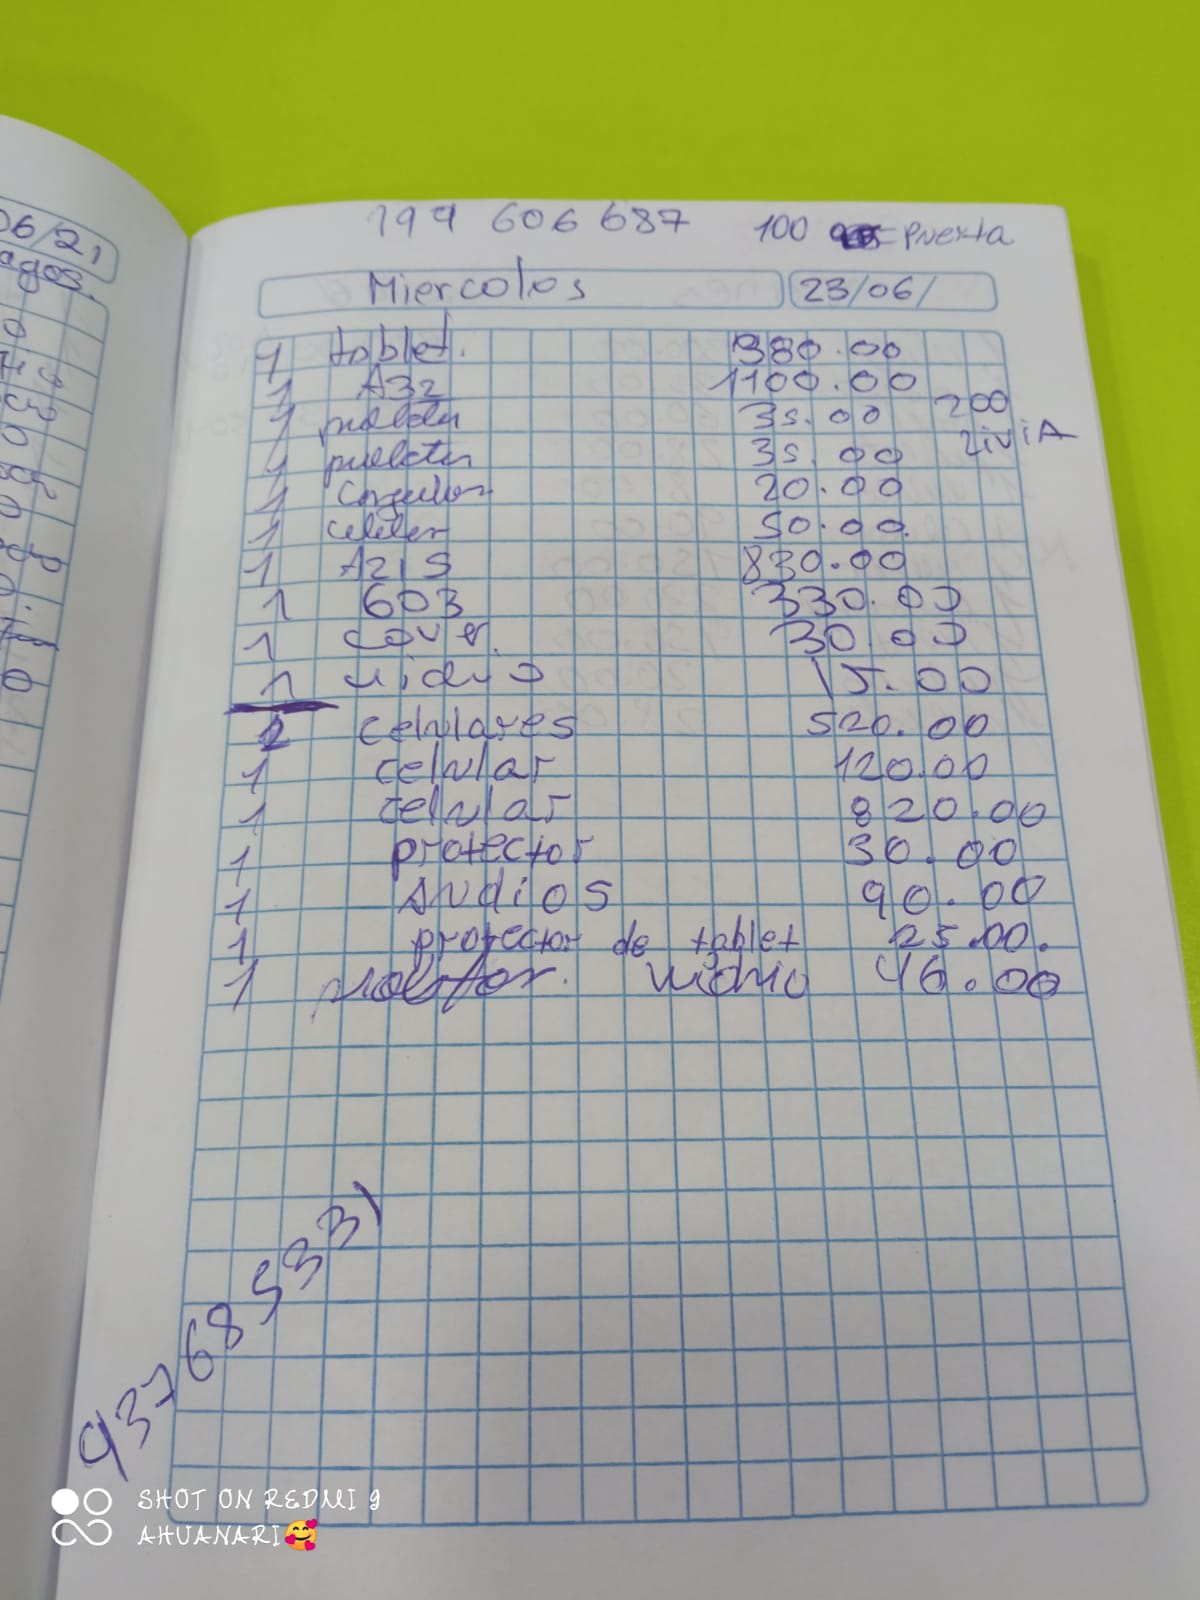 06/21
agos.
199 606 687 100 = puerta
Miercoles 23/06/
1 tablet. 380.00
1 A32 1100.00
1 35.00 200
1 35.00 ZiviA
1 20.00
1 50.00.
1 A21S 830.00
1 603 330.00
1 cover. 30.00
1 vidrio 15.00
2 celulares 520.00
1 celular 120.00
1 celular 820.00
1 protector 30.00
1 Audios 90.00
1 protector de tablet 25.00.
1 vidrio 46.00
937685331
SHOT ON REDMI 9
AHUANARI🥰